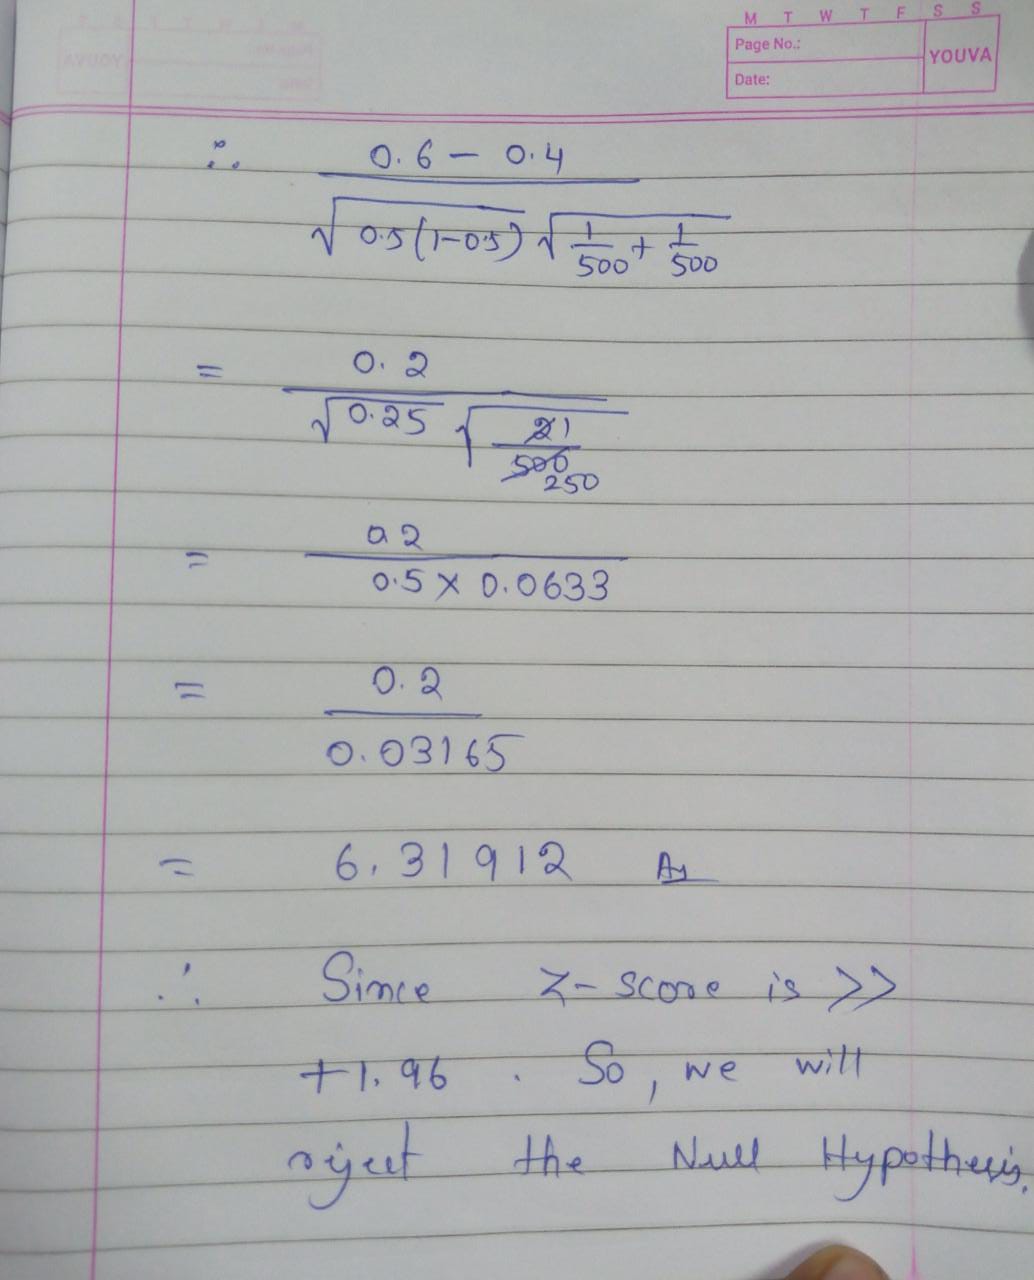 M T W T F S S
Page No.:
YOUVA
Date:
∴ 0.6 - 0.4
√0.5(1-0.5) √1/500 + 1/500
= 0.2
√0.25 √21
500
250
= 02
0.5 × 0.0633
= 0.2
0.03165
= 6.31912
∴ Since z-score is >>
+1.96 . So, we will
reject the Null Hypothesis.